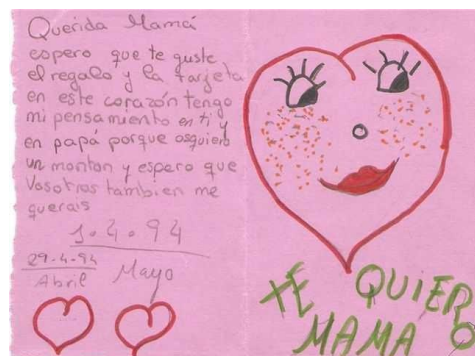 Querida Mamá
espero que te guste
el regalo y la tarjeta
en este corazón tengo
mi pensamiento en ti y
en papá porque osquiero
un monton y espero que
vosotros tambien me
querais
1.4.94
29.4.94
Abril Mayo
TE QUIERO
MAMA